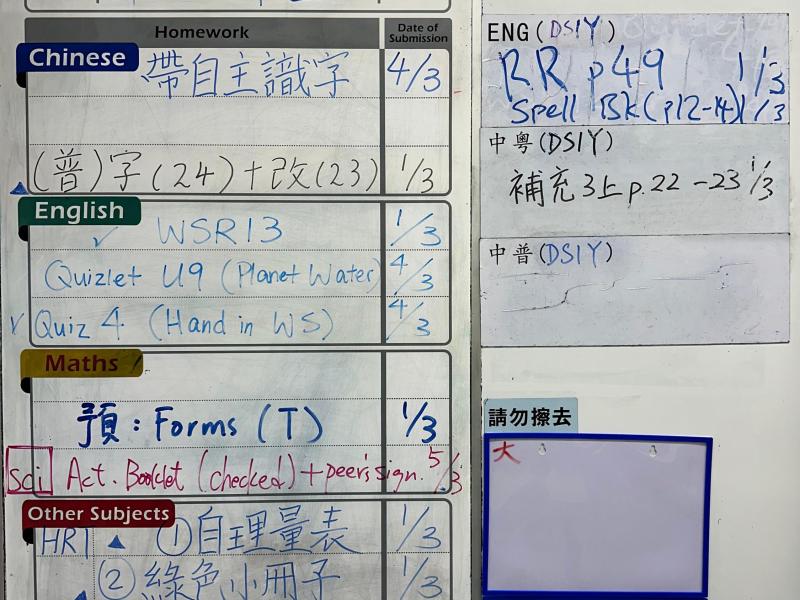 Homework
Date of Submission
Chinese
帶自主識字 4/3
(普)字(24)+改(23) 1/3
English
✓ WSR13 1/3
Quizlet U9 (Planet Water) 4/3
✓ Quiz 4 (Hand in WS) 4/3
Maths
預: Forms (T) 1/3
Sci Act. Booklet (checked) + peer's sign. 5/3
Other Subjects
HRT ▲ ①自理量表 1/3
②綠色小冊子 1/3
ENG (DSIY)
RR p49 1/3
Spell Bk (p12-14) 1/3
中粵(DSIY)
補充3上 p.22-23 1/3
中普(DSIY)
請勿擦去
大